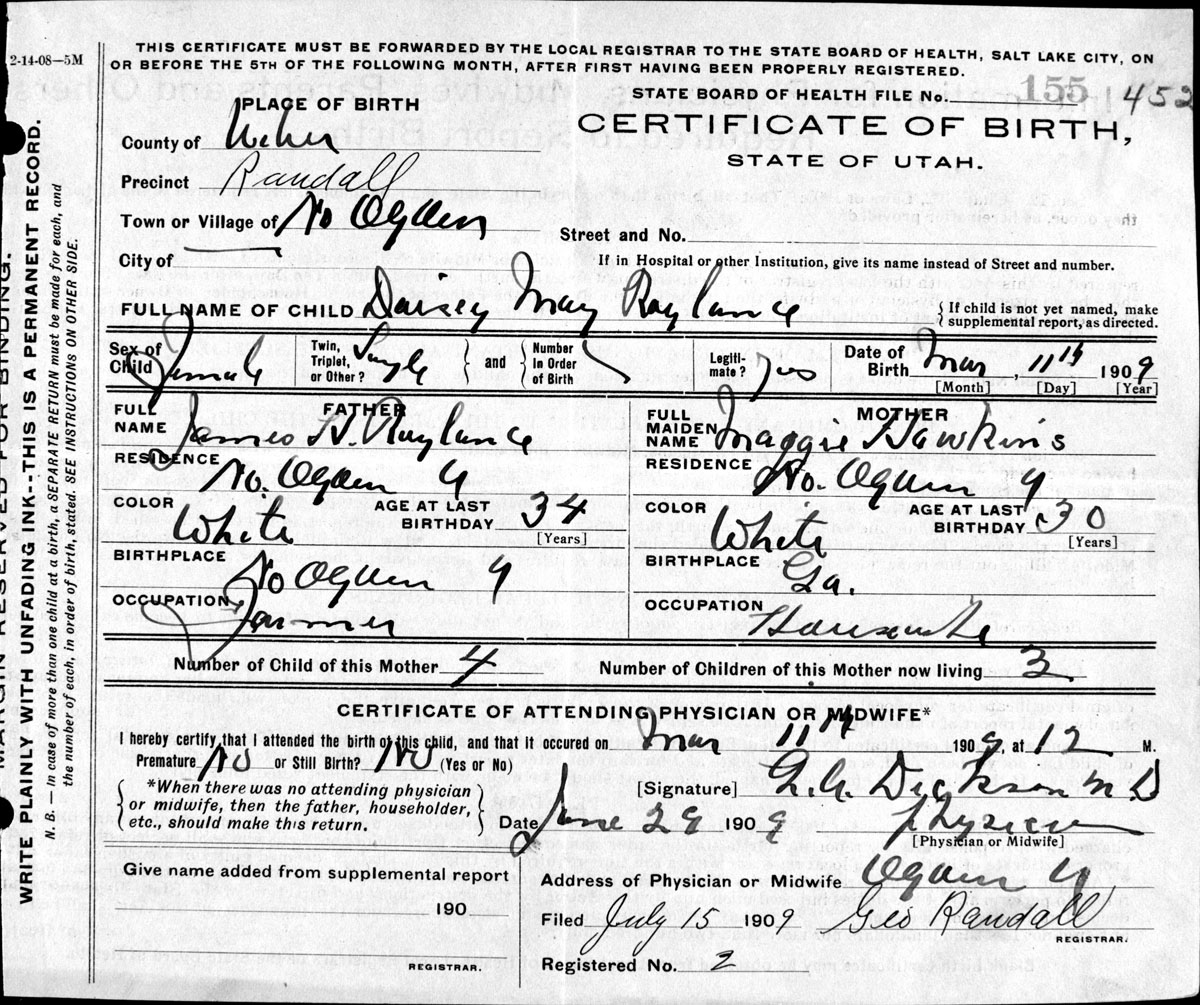 2-14-08—5M
THIS CERTIFICATE MUST BE FORWARDED BY THE LOCAL REGISTRAR TO THE STATE BOARD OF HEALTH, SALT LAKE CITY, ON
OR BEFORE THE 5TH OF THE FOLLOWING MONTH, AFTER FIRST HAVING BEEN PROPERLY REGISTERED.
STATE BOARD OF HEALTH FILE No. 155 1452
CERTIFICATE OF BIRTH,
STATE OF UTAH.
PLACE OF BIRTH
County of Weber
Precinct Randall
Town or Village of No Ogden
Street and No.
City of
If in Hospital or other Institution, give its name instead of Street and number.
FULL NAME OF CHILD Daisey May Roylance
{ If child is not yet named, make supplemental report, as directed.
Sex of Child Female
Twin, Triplet, or Other? Single } and { Number In Order of Birth
Legiti-mate? yes
Date of Birth Mar, 11th 1909
[Month] [Day] [Year]
FATHER
FULL NAME James H. Roylance
RESIDENCE No. Ogden U
COLOR White
AGE AT LAST BIRTHDAY 34
[Years]
BIRTHPLACE No Ogden U
OCCUPATION Farmer
MOTHER
FULL MAIDEN NAME Maggie Hawkins
RESIDENCE No. Ogden U
COLOR White
AGE AT LAST BIRTHDAY 30
[Years]
BIRTHPLACE Ga.
OCCUPATION Housewife
Number of Child of this Mother 4
Number of Children of this Mother now living 3
CERTIFICATE OF ATTENDING PHYSICIAN OR MIDWIFE*
I hereby certify that I attended the birth of this child, and that it occured on Mar 11th 1909, at 12 M.
Premature No or Still Birth? No (Yes or No)
{ *When there was no attending physician or midwife, then the father, householder, etc., should make this return. }
[Signature] Dickson M.D
Date June 29 1909
Physician
[Physician or Midwife]
Give name added from supplemental report
190
REGISTRAR.
Address of Physician or Midwife Ogden U
Filed July 15 1909 Geo Randall
REGISTRAR.
Registered No. 2
MARGIN RESERVED FOR BINDING.
WRITE PLAINLY WITH UNFADING INK---THIS IS A PERMANENT RECORD.
N. B. — In case of more than one child at a birth, a SEPARATE RETURN must be made for each, and
the number of each, in order of birth, stated. SEE INSTRUCTIONS ON OTHER SIDE.